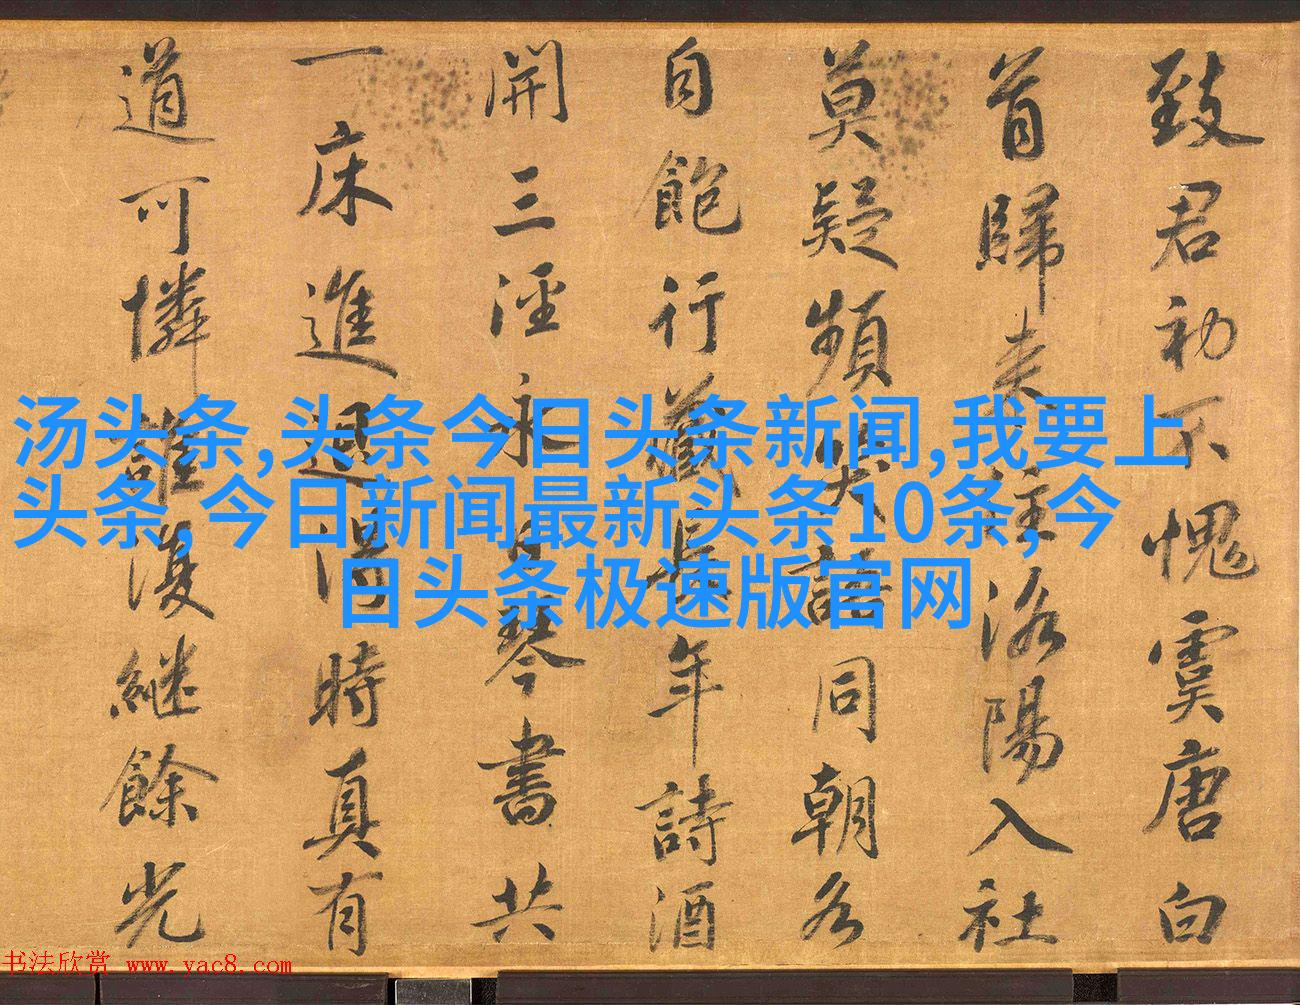 致君初不愧虞唐白
首歸来住洛陽入社
莫疑頻笑語同朝各
自飽行藏長年詩酒
開三徑永日琴書共
一床進退得時真有
道可憐誰復繼餘光
汤头条,头条今日头条新闻,我要上
头条,今日新闻最新头条10条,今
日头条极速版官网
书法欣赏 www.yac8.com